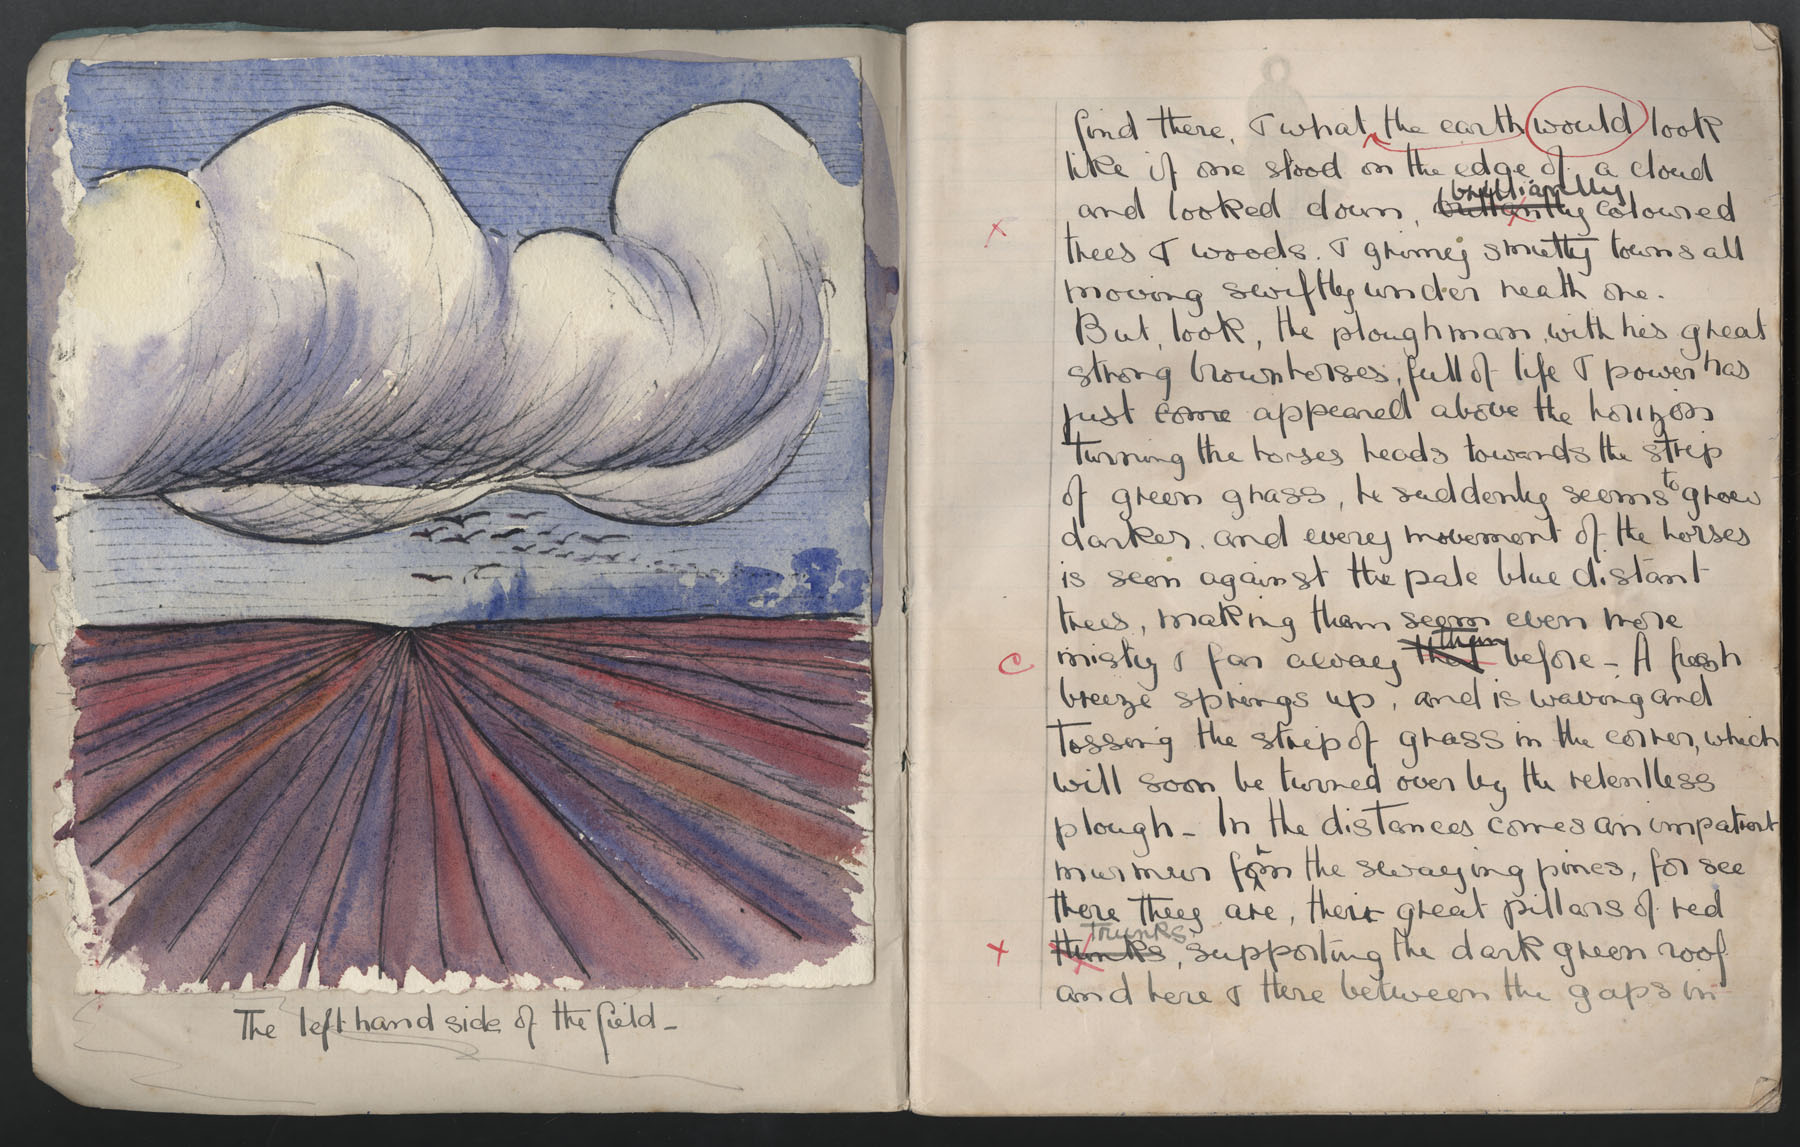 The left hand side of the field -
find there, & what the earth would look
like if one stood on the edge of a cloud
and looked down, brilliantly coloured
trees & woods. & grimey smutty towns all
moving swiftly under neath one.
But, look, the ploughman, with his great
strong brown horses, full of life & power has
just come appeared above the horizon
Turning the horses heads towards the strip
of green grass, he suddenly seems to grow
darker. and every movement of the horses
is seen against the pale blue distant
trees, making them seem even more
misty & far away then before - A fresh
breeze springs up, and is waving and
Tossing the strip of grass in the corner, which
will soon be turned over by the relentless
plough - In the distances comes an impatient
murmur from the swaying pines, for see
there they are, their great pillars of red
trunks, supporting the dark green roof
and here & there between the gaps in